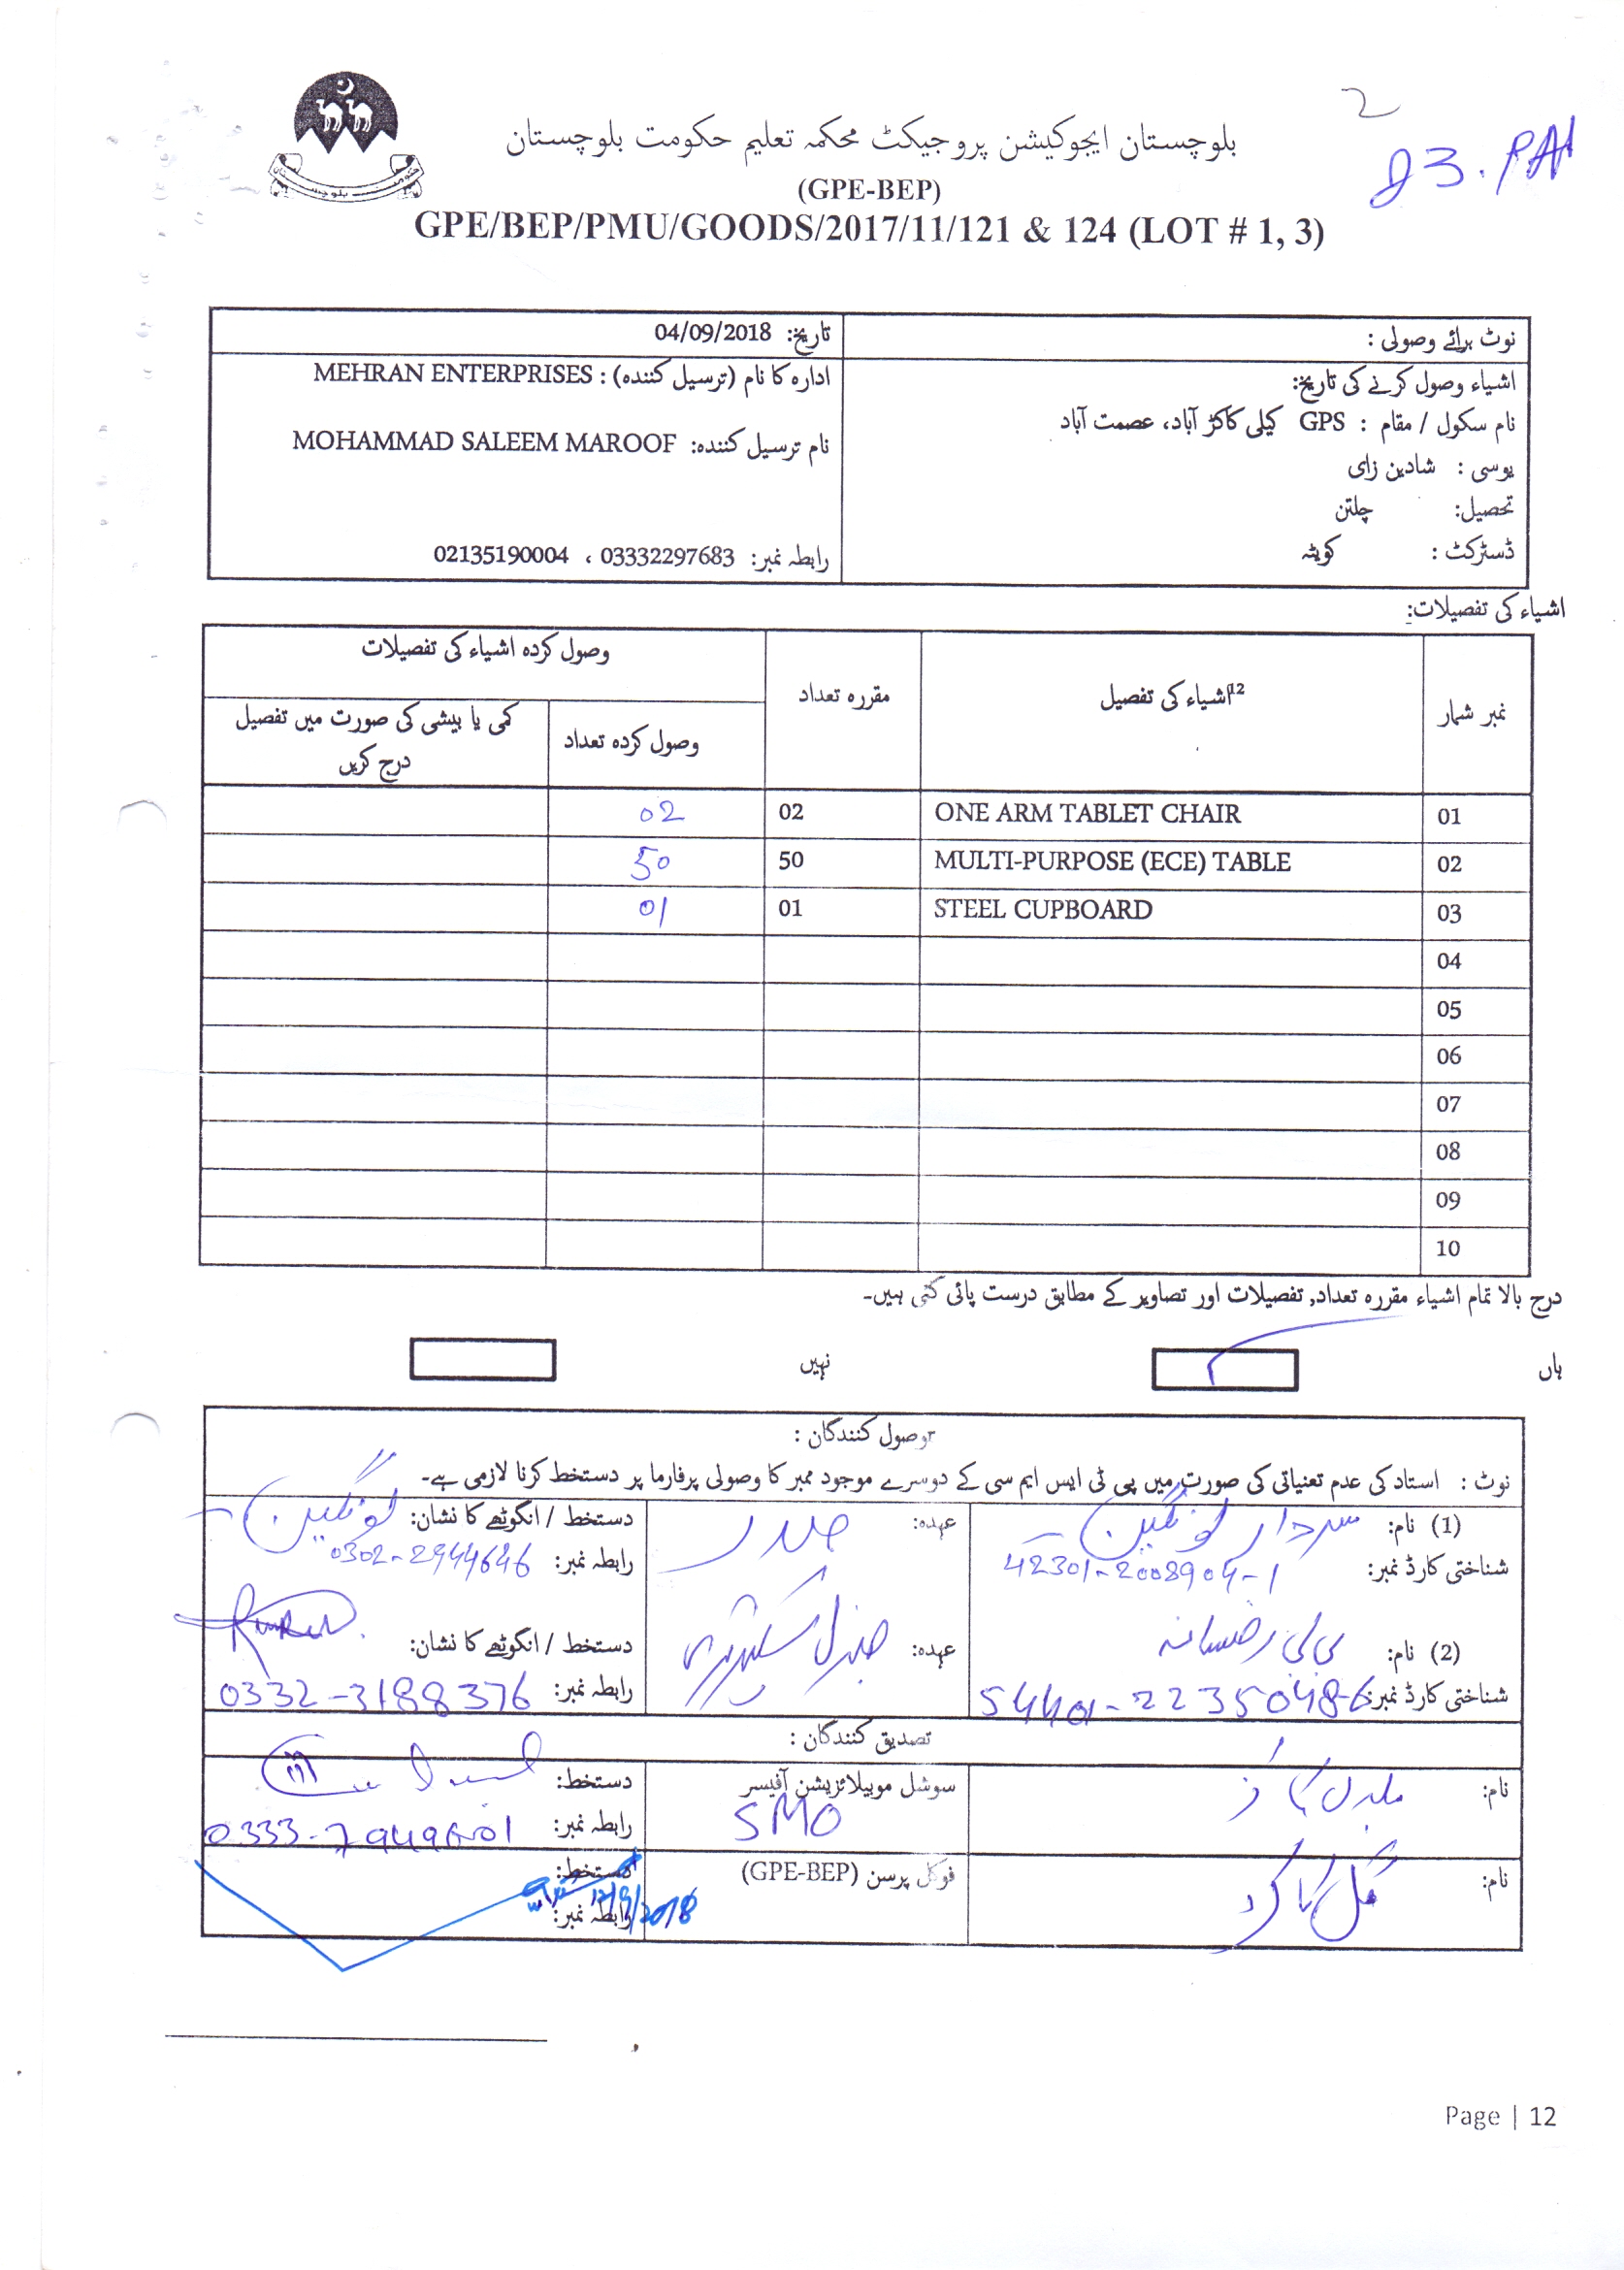 2
بلوچستان ایجوکیشن پروجیکٹ محکمہ تعلیم حکومت بلوچستان
(GPE-BEP)
GPE/BEP/PMU/GOODS/2017/11/121 & 124 (LOT # 1, 3)
نوٹ برائے وصولی :
تاریخ: 04/09/2018
اشیاء وصول کرنے کی تاریخ:
نام سکول / مقام : GPS کیلی کاکڑ آباد، عصمت آباد
یوسی : شادین زای
تحصیل: چلتن
ڈسٹرکٹ : کویٹہ
ادارہ کا نام (ترسیل کنندہ) : MEHRAN ENTERPRISES
نام ترسیل کنندہ: MOHAMMAD SALEEM MAROOF
رابطہ نمبر: 03332297683 ، 02135190004
اشیاء کی تفصیلات:
نمبر شمار اشیاء کی تفصیل12 مقررہ تعداد وصول کردہ اشیاء کی تفصیلات
وصول کردہ تعداد کمی یا بیشی کی صورت میں تفصیل درج کریں
01 ONE ARM TABLET CHAIR 02 02
02 MULTI-PURPOSE (ECE) TABLE 50 50
03 STEEL CUPBOARD 01 01
04
05
06
07
08
09
10
درج بالا تمام اشیاء مقررہ تعداد, تفصیلات اور تصاویر کے مطابق درست پائی گئی ہیں۔
ہاں نہیں
وصول کنندگان :
نوٹ : استاد کی عدم تعنیاتی کی صورت میں پی ٹی ایس ایم سی کے دوسرے موجود ممبر کا وصولی پرفارما پر دستخط کرنا لازمی ہے۔
(1) نام: سردار عہدہ: صدر دستخط / انگوٹھے کا نشان:
شناختی کارڈ نمبر: 42301-2008904-1 رابطہ نمبر: 0302-2944646
(2) نام: بی بی رخسانہ عہدہ: جنرل سیکریٹری دستخط / انگوٹھے کا نشان:
شناختی کارڈ نمبر: 54401-2235048-6 رابطہ نمبر: 0332-3188376
تصدیق کنندگان :
نام: سوشل موبیلائزیشن آفیسر دستخط:
SMO رابطہ نمبر:
نام: گل کاکڑ فوکل پرسن (GPE-BEP) دستخط:
رابطہ نمبر: 12/9/2018
Page | 12